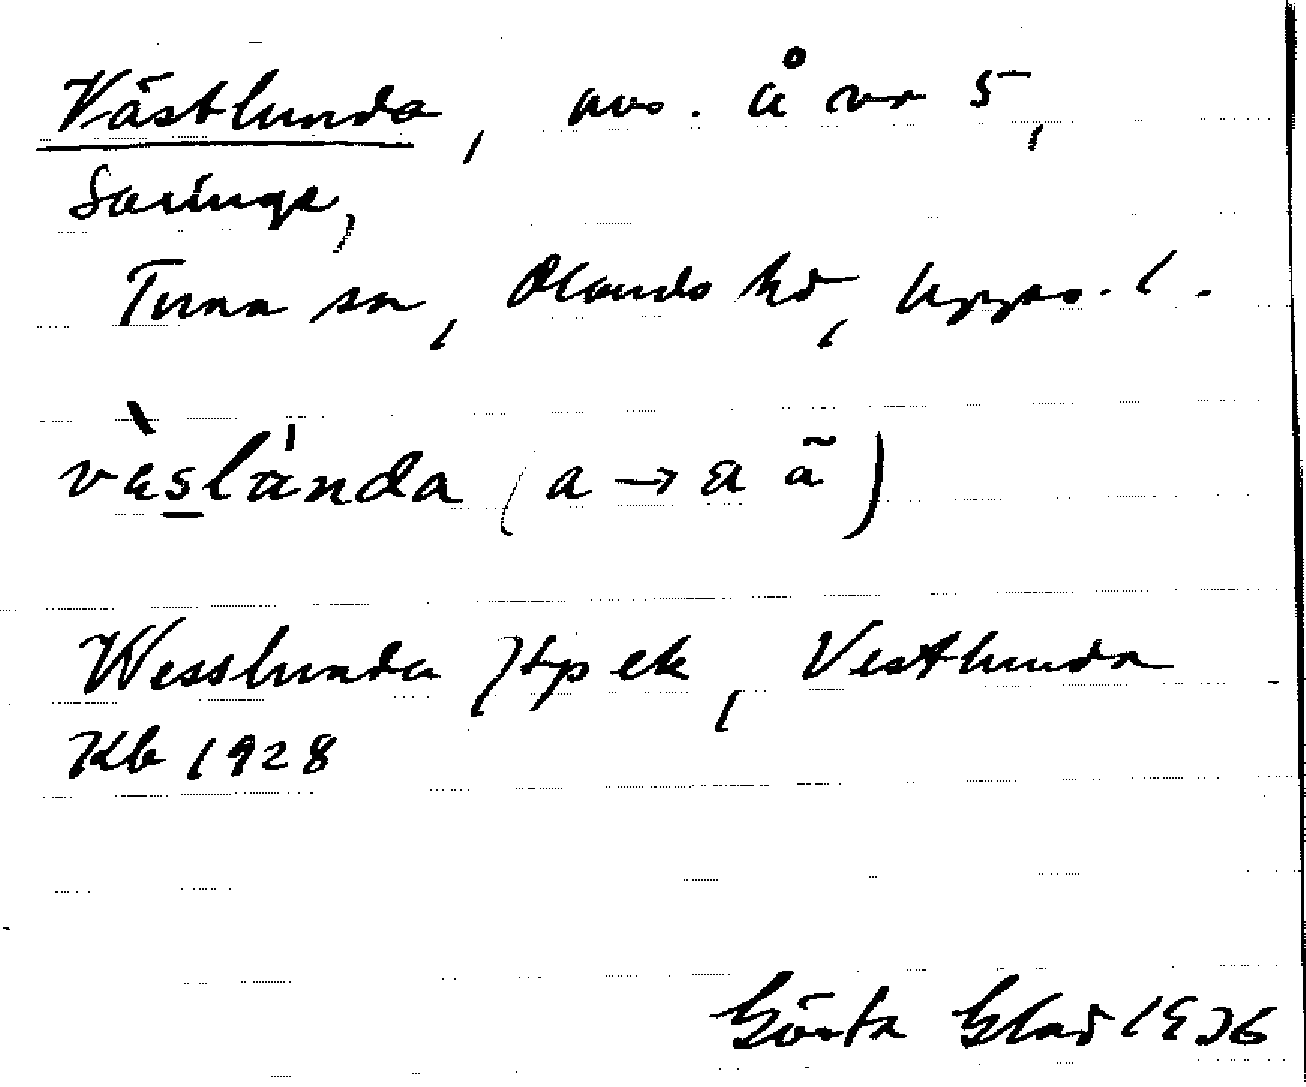 Västlunda, avs. å nr 5,
Saringe,
Tuna sn, Olands hd, Upps. l.
vèslánda (a → a ã)
Wesslunda Htp ek, Vestlunda
Kb 1928
Gösta Glad 1936